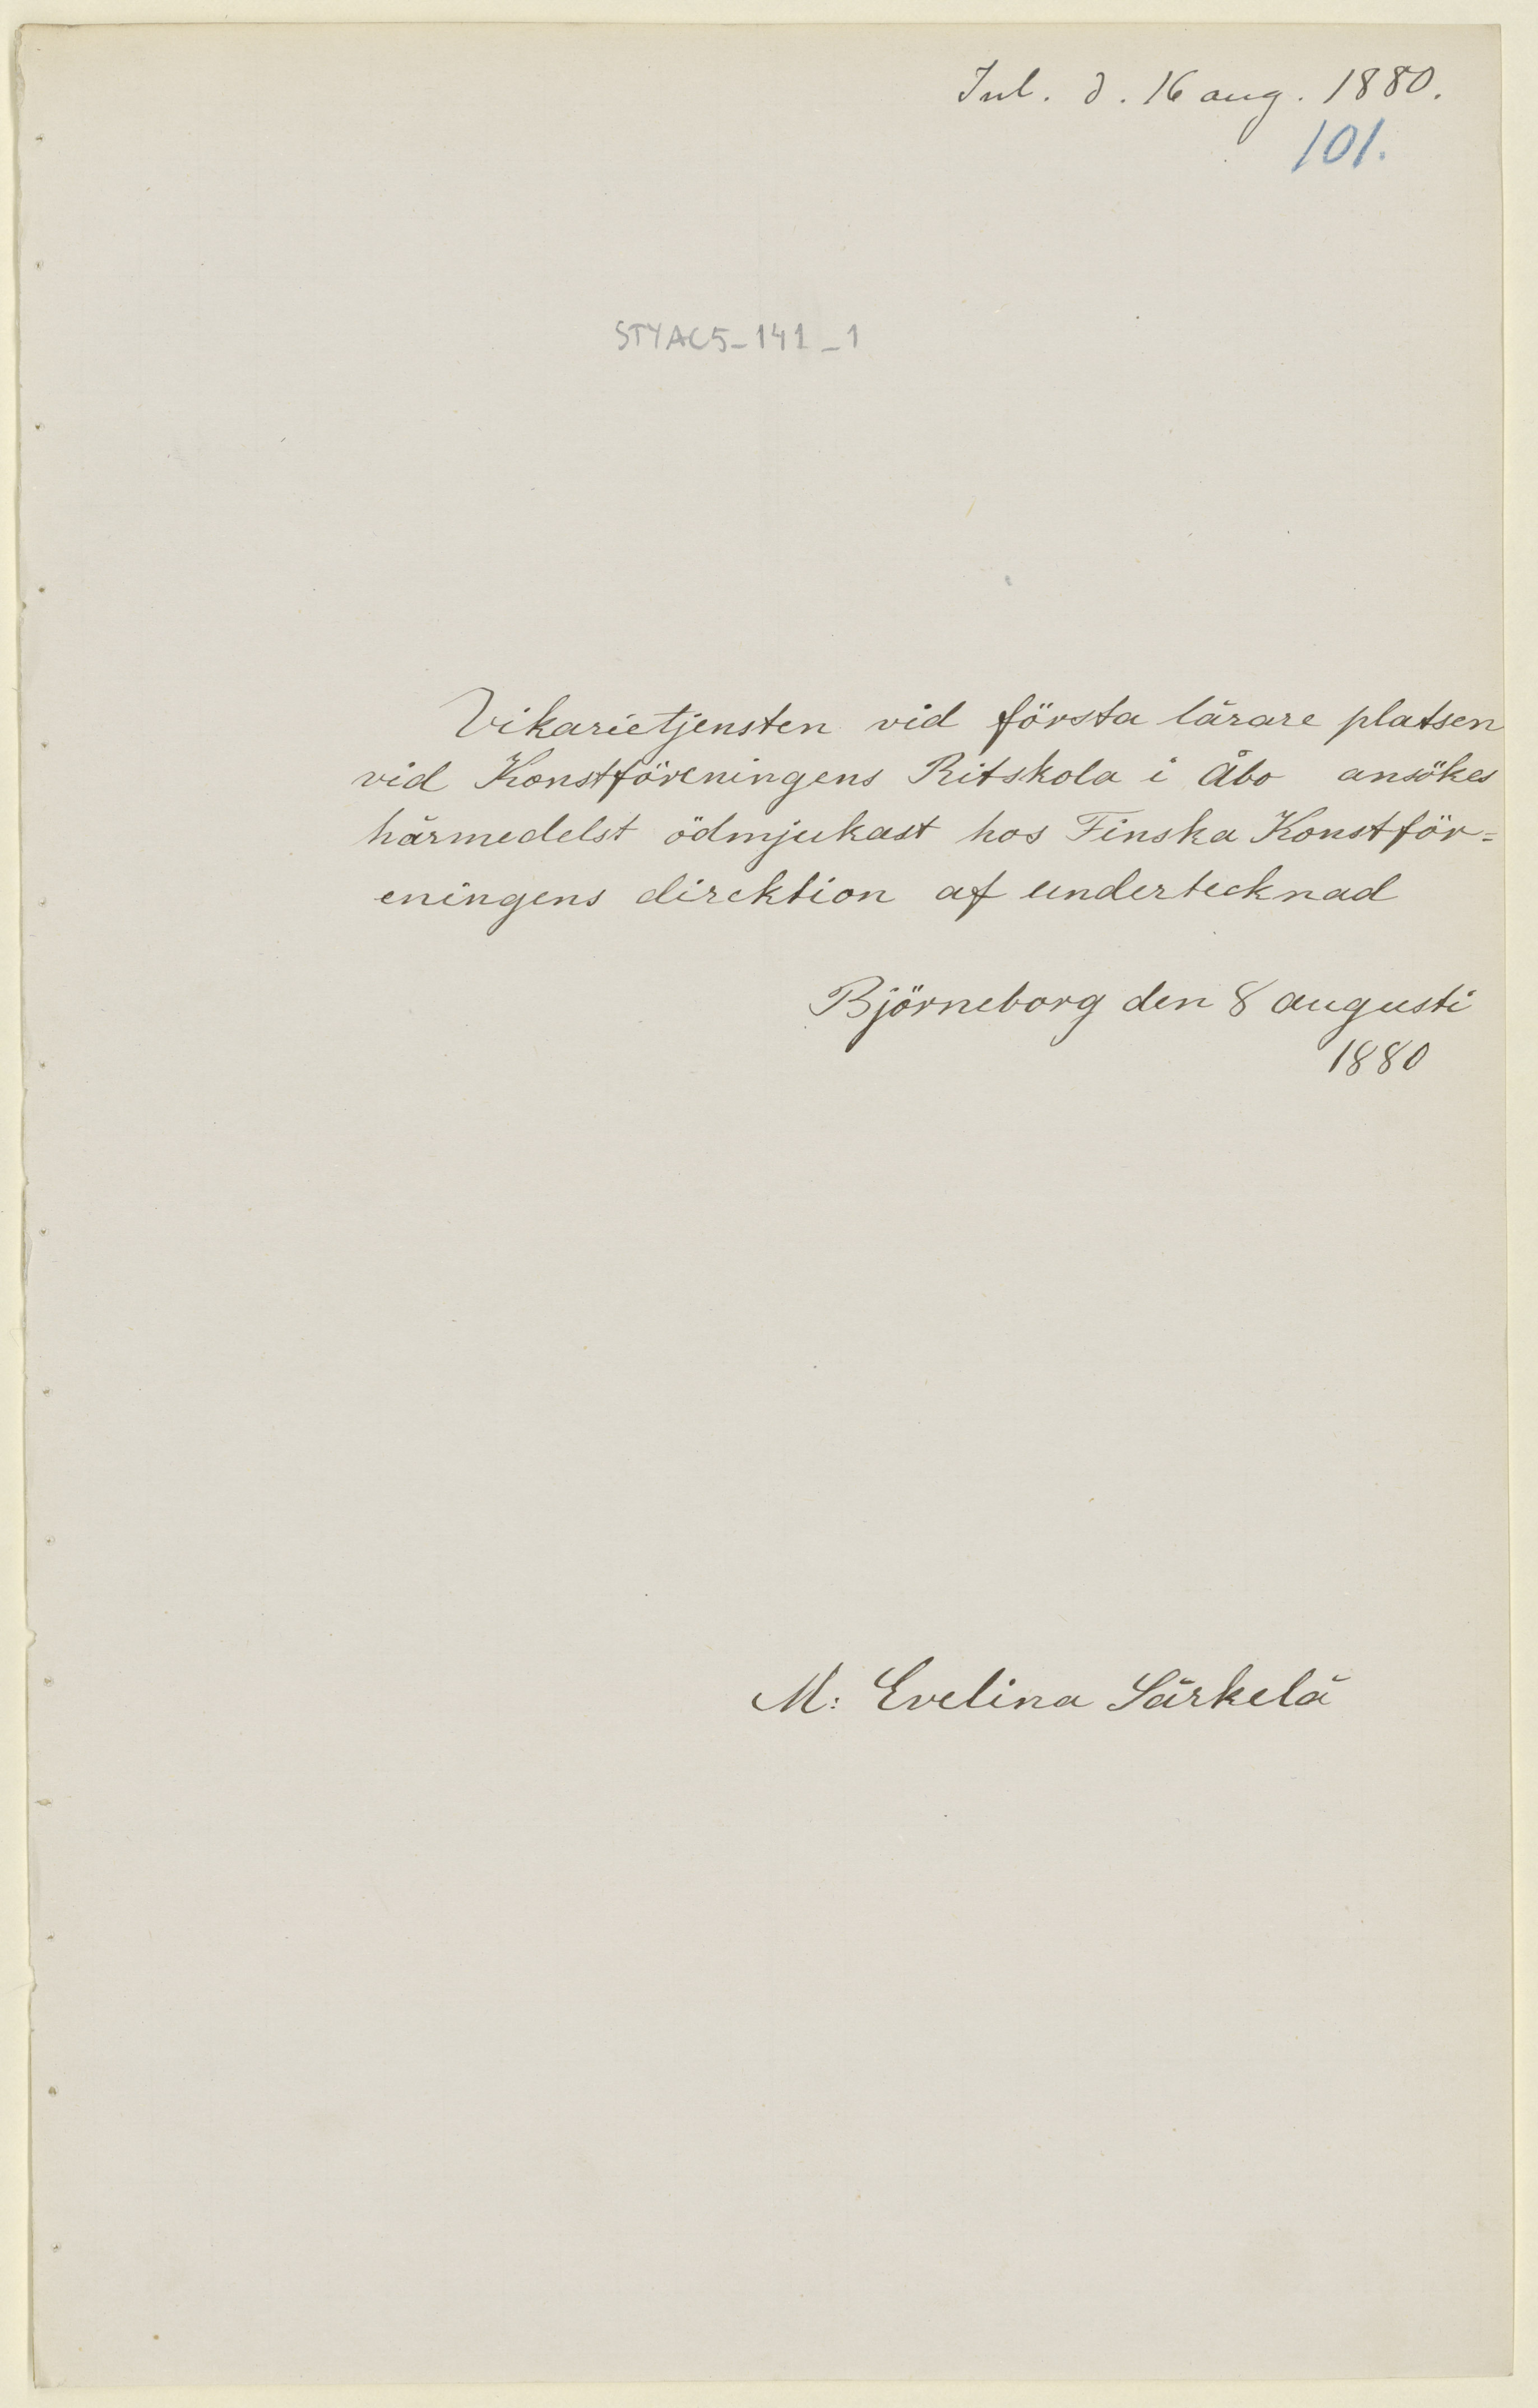 Inl. d. 16 aug. 1880.
101.
STYAC5-141-1
Vikarietjensten vid första lärare platsen
vid Konstföreningens Ritskola i Åbo ansökes
härmedelst ödmjukast hos Finska Konstför=
eningens direktion af undertecknad
Björneborg den 8 augusti
1880
M: Evelina Särkelä